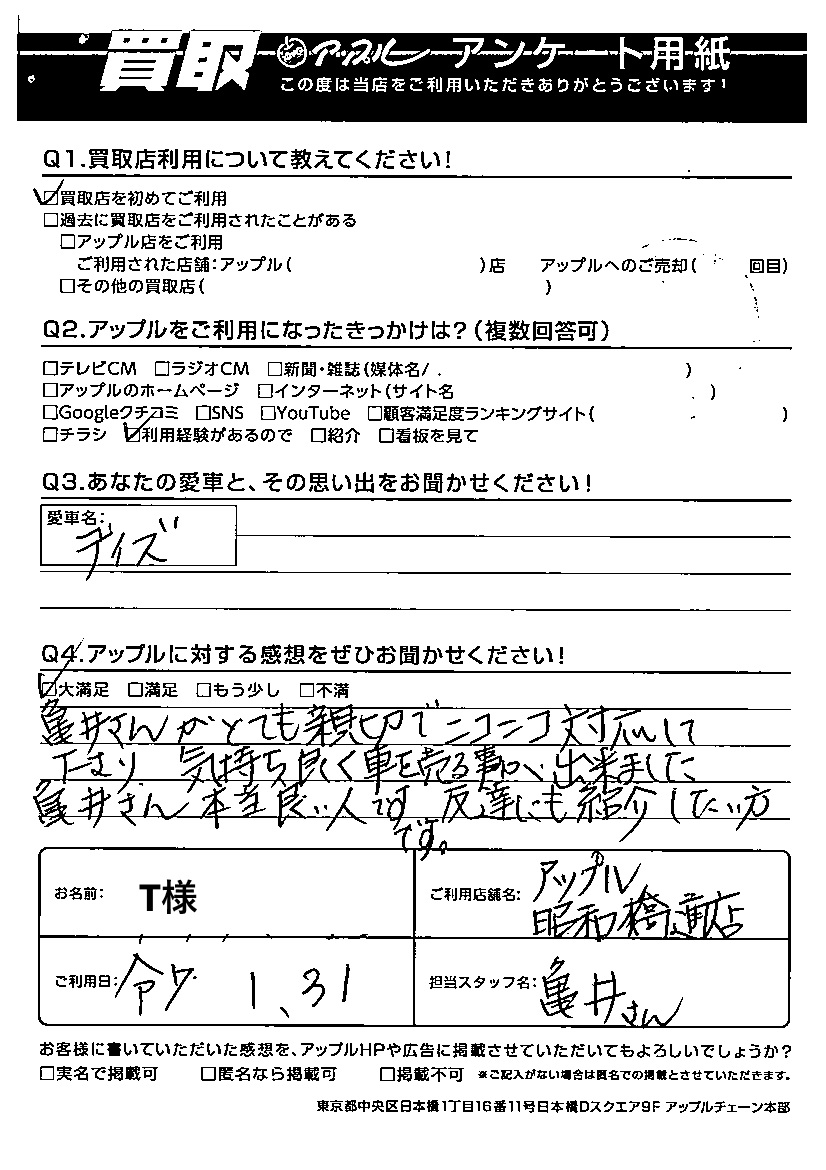 買取 アップル アンケート用紙
この度は当店をご利用いただきありがとうございます!
Q1.買取店利用について教えてください!
☑買取店を初めてご利用
□過去に買取店をご利用されたことがある
□アップル店をご利用
ご利用された店舗:アップル( )店 アップルへのご売却( 回目)
□その他の買取店( )
Q2.アップルをご利用になったきっかけは?(複数回答可)
□テレビCM □ラジオCM □新聞・雑誌(媒体名/ )
□アップルのホームページ □インターネット(サイト名 )
□Googleクチコミ □SNS □YouTube □顧客満足度ランキングサイト( )
□チラシ ☑利用経験があるので □紹介 □看板を見て
Q3.あなたの愛車と、その思い出をお聞かせください!
愛車名:
デイズ
Q4.アップルに対する感想をぜひお聞かせください!
☑大満足 □満足 □もう少し □不満
亀井さんがとても親切でニコニコ対応して
下さり 気持ち良く車を売る事が出来ました
亀井さん本当良い人です 友達にも紹介したい方
です。
お名前: T様
ご利用店舗名: アップル
昭和橋通店
ご利用日: 令7 1、31
担当スタッフ名: 亀井さん
お客様に書いていただいた感想を、アップルHPや広告に掲載させていただいてもよろしいでしょうか?
□実名で掲載可 □匿名なら掲載可 □掲載不可 ※ご記入がない場合は匿名での掲載とさせていただきます。
東京都中央区日本橋1丁目16番11号日本橋Dスクエア9F アップルチェーン本部